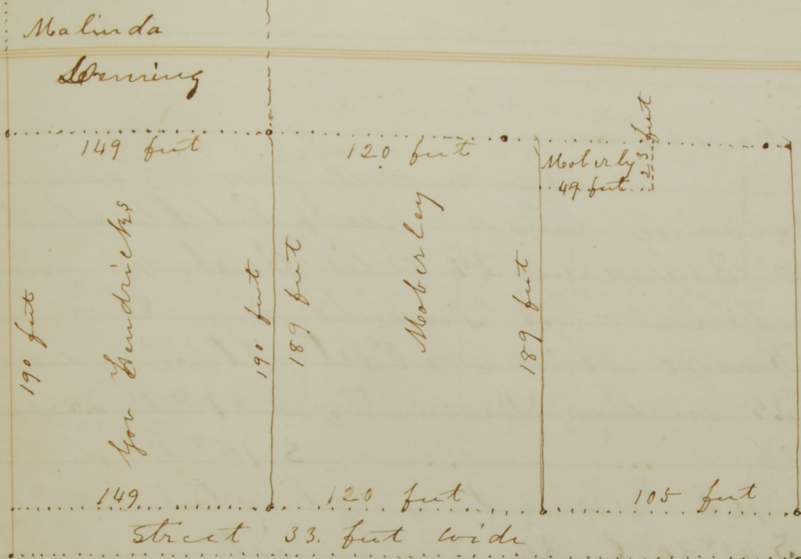 Malinda
Deming
149 feet
120 feet
Moberly
23 feet
49 feet
190 feet
Gov Hendricks
190 feet
189 feet
Moberley
189 feet
149
120 feet
105 feet
Street 33. feet wide